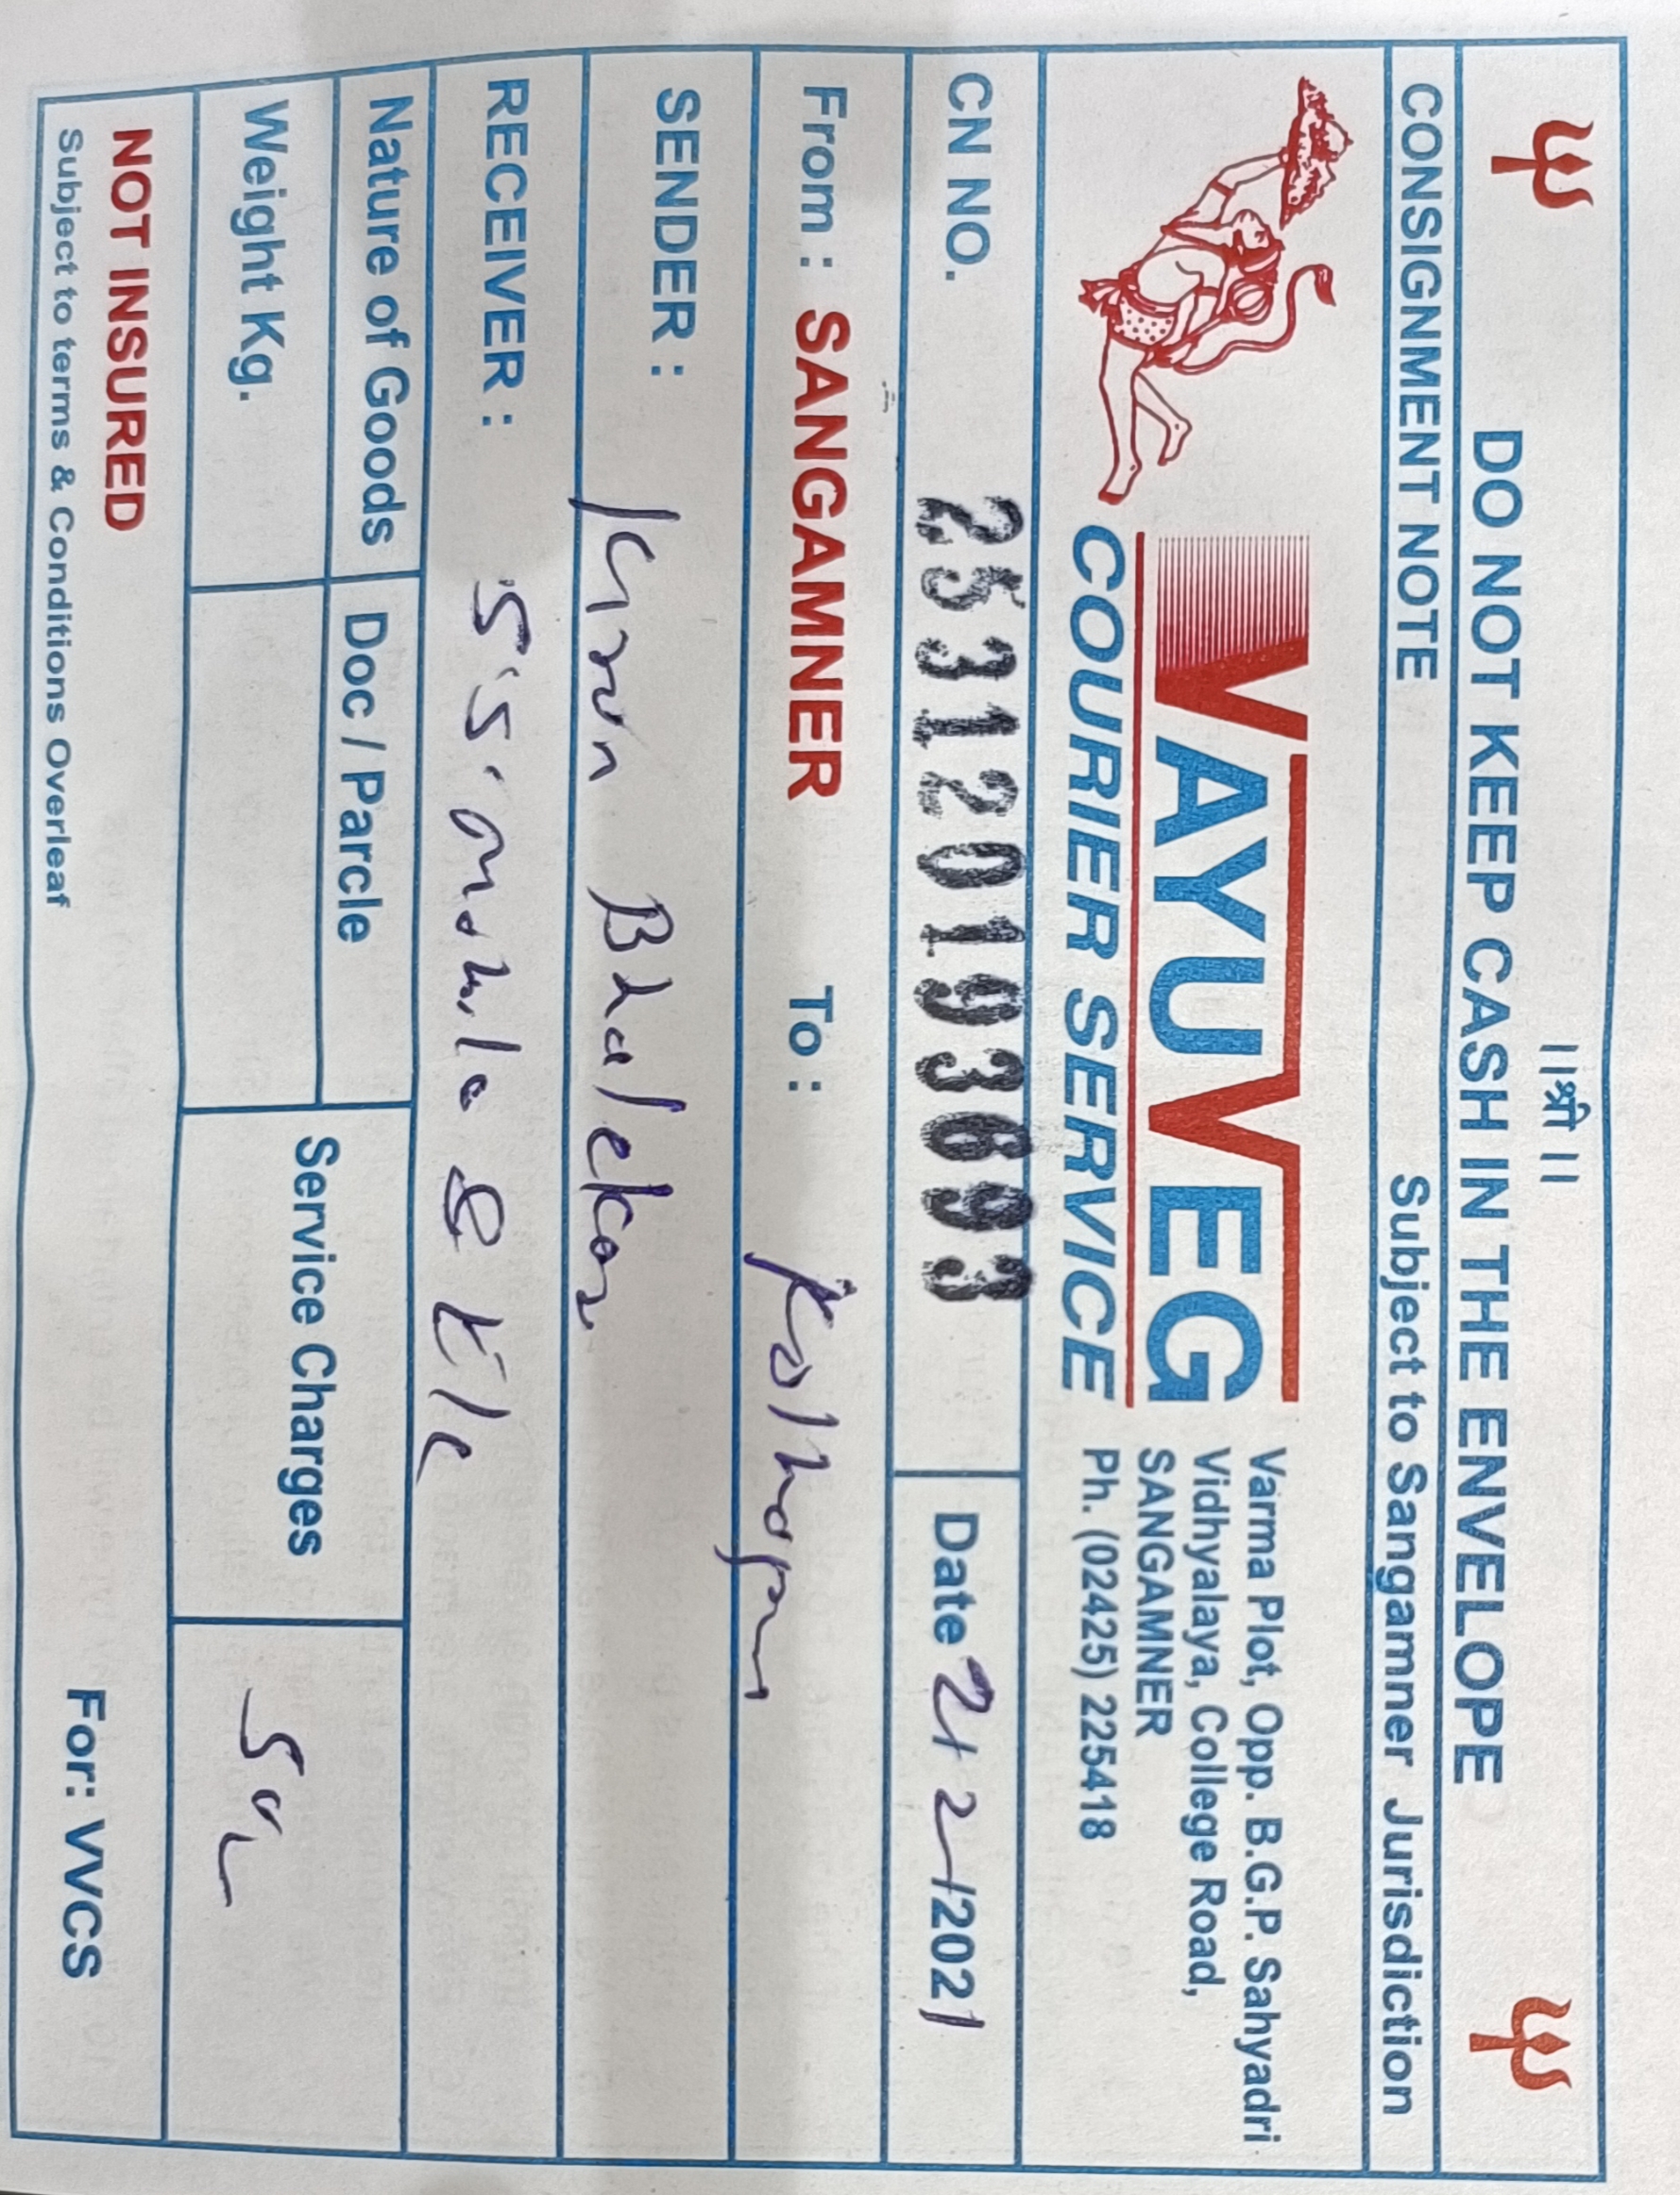 ||श्री ||
DO NOT KEEP CASH IN THE ENVELOPE
CONSIGNMENT NOTE Subject to Sangamner Jurisdiction
VAYUVEG
COURIER SERVICE
Varma Plot, Opp. B.G.P. Sahyadri
Vidhyalaya, College Road,
SANGAMNER
Ph. (02425) 225418
CN NO. 253120193693 Date 2/2/2021
From : SANGAMNER To : Kolhapur
SENDER : Kiran Bhalekar
RECEIVER : S.S. Mobile & Ele
Nature of Goods Doc / Parcle
Service Charges
Weight Kg.
NOT INSURED
Subject to terms & Conditions Overleaf
For: VVCS